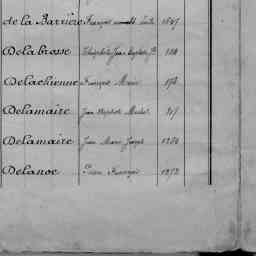 de la Barrière François
Delabrosse Théophile Jean Baptiste
Delachienne François Marie
Delamaire Jean Baptiste Michel 917
Delamaire Jean Marie Joseph
Delanoe François 1272